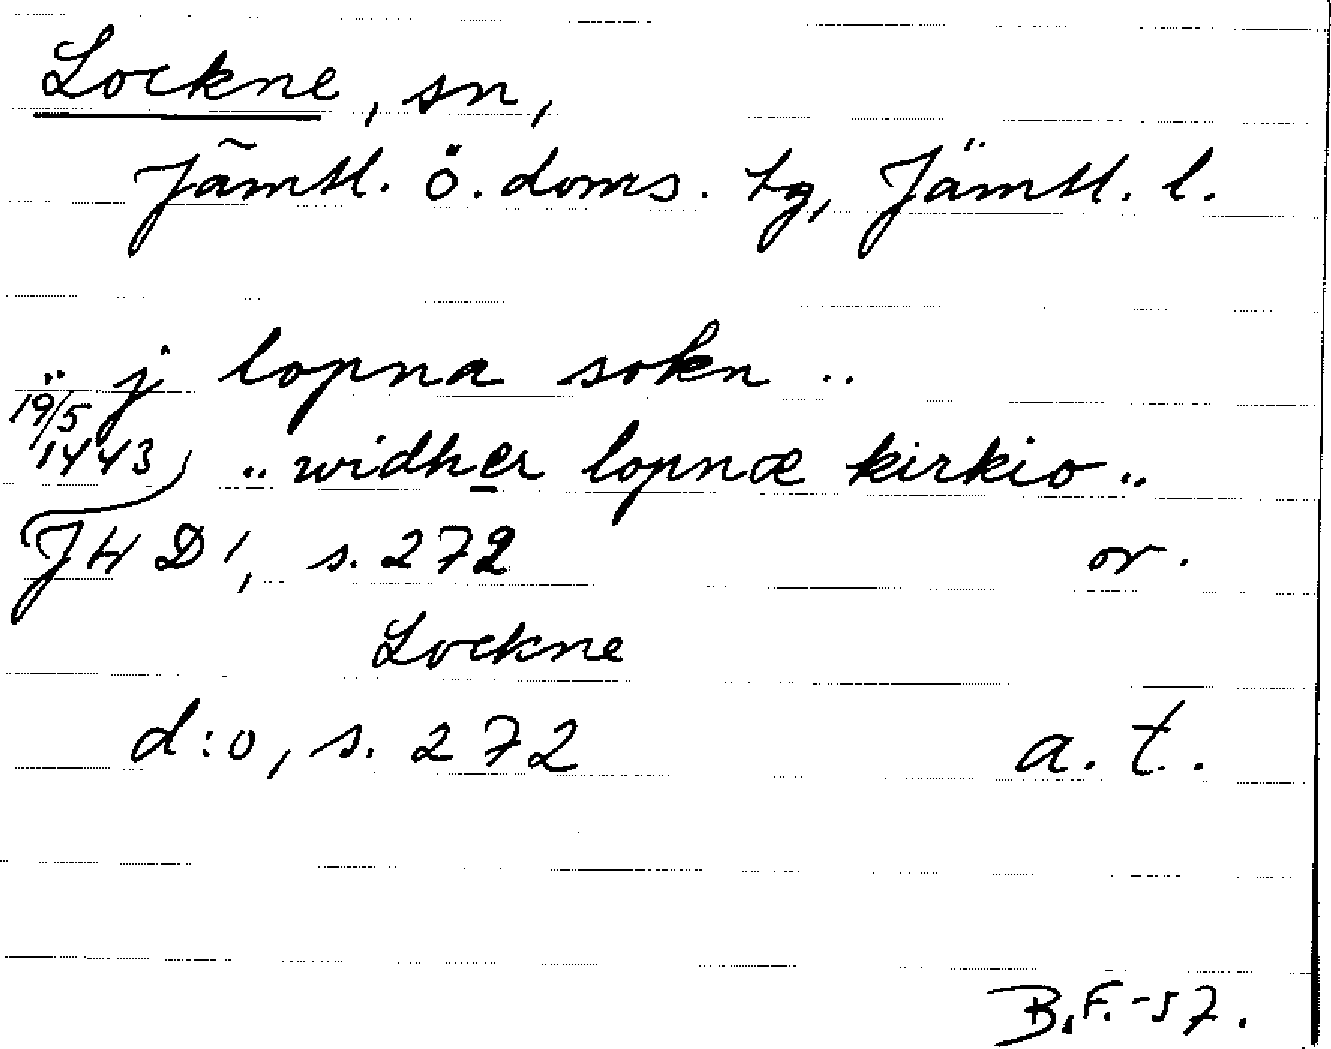 Lockne, sn,
Jämtl. ö. doms. tg, Jämtl. l.
.. j lopna sokn ..
19/5 1443
.. widher lopnæ kirkio ..
JHD 1, s. 272 or.
Lockne
d:o, s. 272 a. t.
B.F.-57.